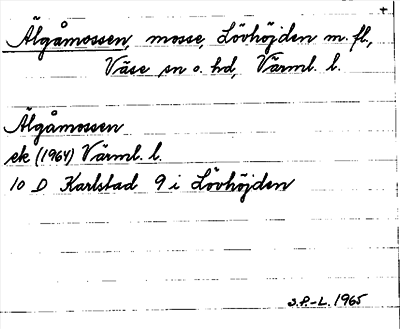 +
Älgåmossen, mosse, Lövhöjden m. fl.,
Väse sn o. hd, Värml. l.
Älgåmossen
ek (1964) Värml. l.
10 D Karlstad 9 i Lövhöjden
S.P.-L. 1965